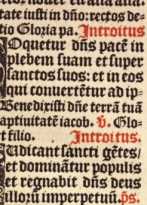 tate iusti in dño: rectos de-
tio Gloria pa. Introitus
Loquetur dñs pacē in
plebem suam et super
sanctos suos: et in eos
qui conuertētur ad ip-
Benedixisti dñe terrā tuā
aptiuitatē iacob. v. Glo-
t filio. Introitus.
Audicant sancti gētes/
et dominātur populis
et regnabit dñs deus
illorū imperpetuū. ps.